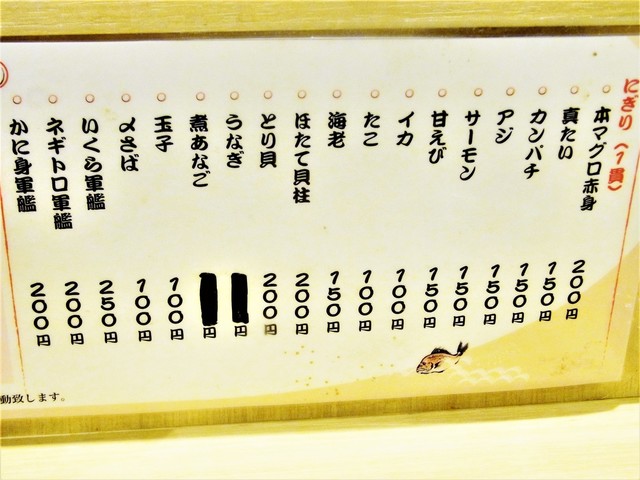 にぎり(1貫)
本マグロ赤身 200円
真たい 150円
カンパチ 150円
アジ 150円
サーモン 150円
甘えび 150円
イカ 100円
たこ 100円
海老 150円
ほたて貝柱 200円
とり貝 200円
うなぎ 円
煮あなご 円
玉子 100円
〆さば 100円
いくら軍艦 250円
ネギトロ軍艦 200円
かに身軍艦 200円
動致します。